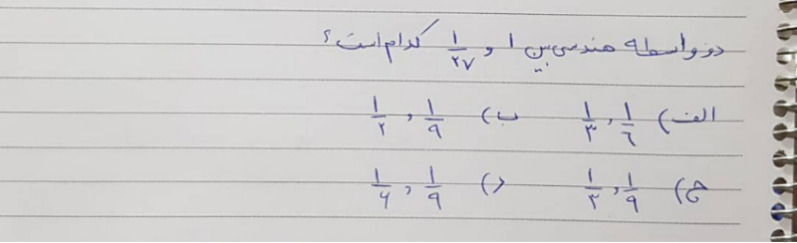 دو واسطه هندسی بین ۱ و ۱/۲۷ کدام است؟
الف) ۱/۶ , ۱/۳ ب) ۱/۹ , ۱/۲
ج) ۱/۹ , ۱/۳ د) ۱/۹ , ۱/۶